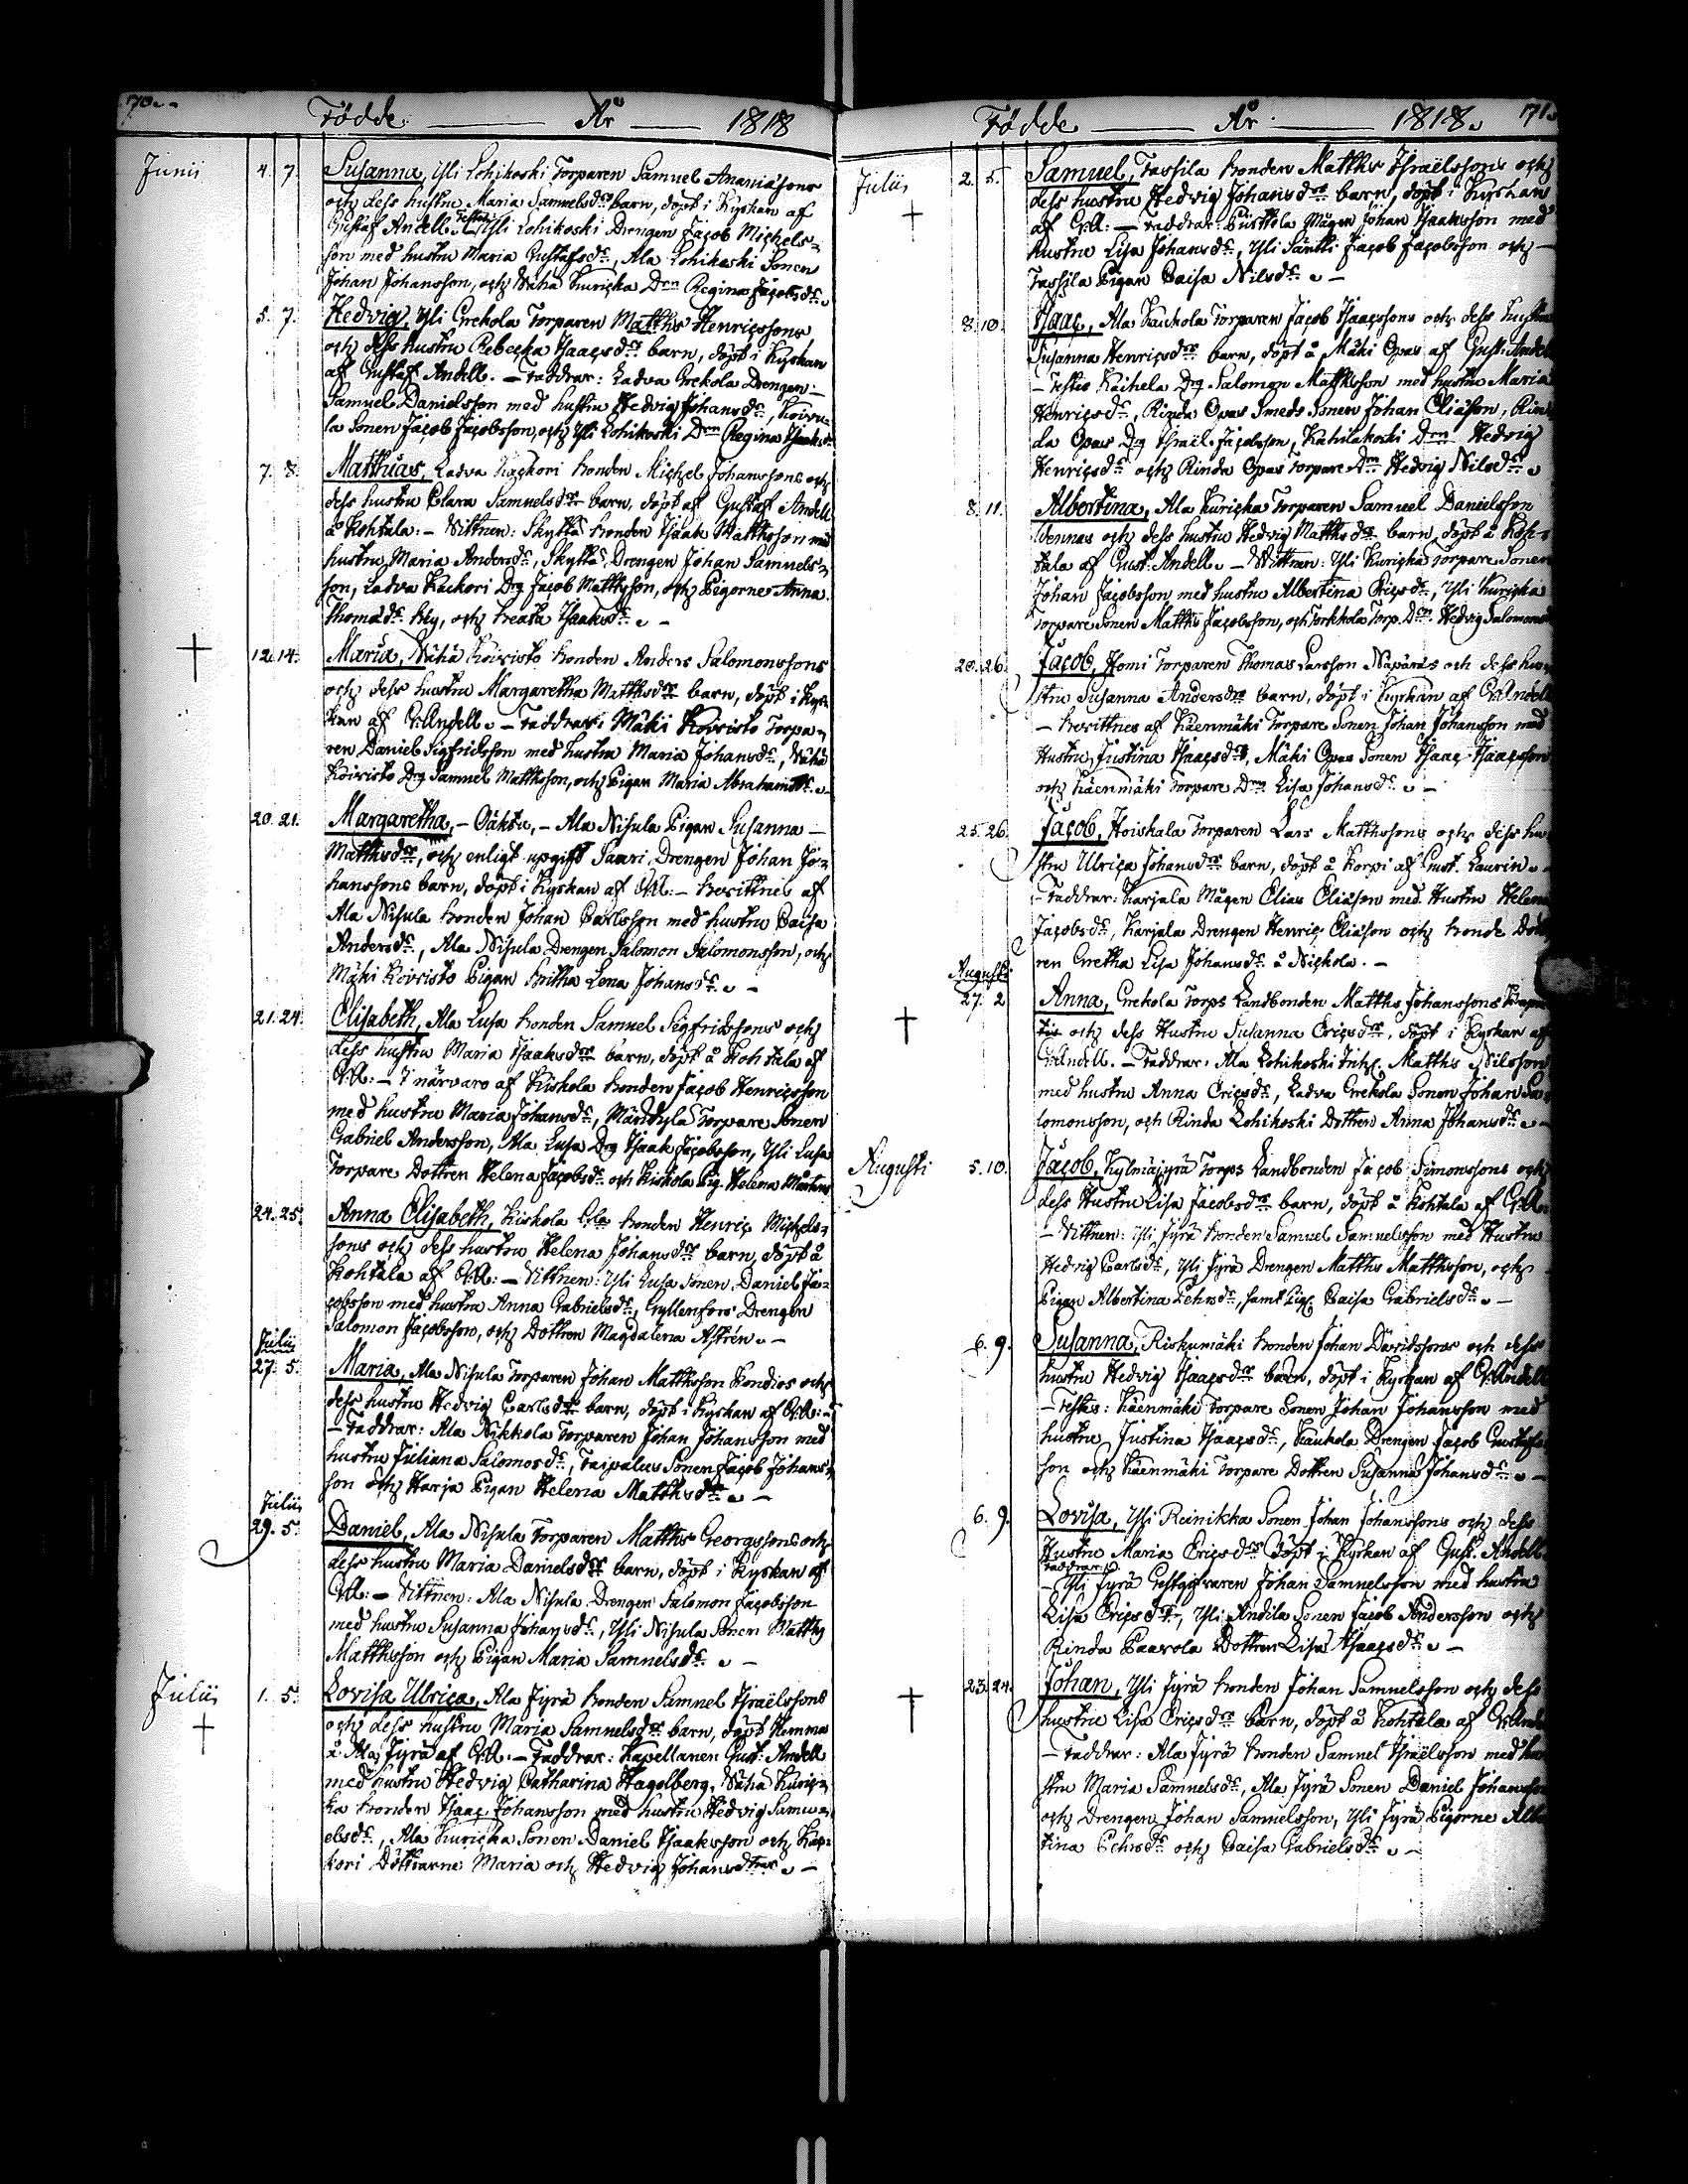 70.
Födde. År 1818
Junii 4. 7. Susanna, Yli Lohikoski Torparen Samuel Ananiæsons
och dess hustru Maria Samuelsdrs barn, döpt i Kyrkan af
Gustaf Andell. Testes: Yli Lohikoski Drengen Jacob Michels-
son med hustru Maria Gustafsdr, Ala Lohikoski Sonen
Johan Johansson, och Nähä Kuricka Drn Regina Jacobsdr.
5. 7. Hedvig, Yli Grekola Torparen Matths Henricssons
och dess hustru Rebecka Isaacsdrs barn, döpt i Kyrkan
af Gustaf Andell. – Faddrar: Ladva Grekola Drengen
Samuel Danielsson med hustru Hedvig Johansdr, Koivu-
la Sonen Jacob Jacobsson, och Yli Lohikoski Drn Regina Isaksdr
7. 8. Matthias, Ladva Kackori bonden Michel Johanssons och
dess hustru Clara Samuelsdrs barn, döpt af Gustaf Andell
å Kohtala: – Vittnen: Skyttä bonden Isaak Matthsson med
hustru Maria Andersdr, Skyttä Drengen Johan Samuels-
son, Ladva Kackori Drg Jacob Matthsson, och Pigorne Anna
Thomædr Bly, och Beata Isaaksdr. –
12. 14. Maria, Nähä Koivisto bonden Anders Salomonssons
och dess hustru Margaretha Matthsdrs barn, döpt i Kyr-
kan af G: Andell. – Faddrar: Mäki Koivisto Torpa-
ren Daniel Sigfridsson med hustru Maria Johansdr, Nähä
Koivisto Drg Samuel Matthsson, och Pigan Maria Abrahamsdr. –
20. 21. Margaretha, – Oäkta, – Ala Nisula Pigan Susanna
Matthsdrs, och enligt upgift Saari Drengen Johan Jo-
hanssons barn, döpt i Kyrkan af G:A: – bevittnes af
Ala Nisula bonden Johan Carlsson med hustru Caisa
Andersdr, Ala Nisula Drengen Salomon Salomonsson, och
Mäki Koivisto Pigan Britha Lena Johansdr. –
21. 24. Elisabeth, Ala Lusa bonden Samuel Sigfridssons och
dess hustru Maria Isaaksdrs barn, döpt å Kohtala af
G:A: – I närvaro af Kiskola bonden Jacob Henricsson
med hustru Maria Johansdr, Torpare Sonen
Gabriel Andersson, Ala Lusa Drg Isaak Jacobsson, Yli Lusa
Torpare Dottren Helena Jacobsdr och Kiskola Pig. Helena Mårtensdr
24. 25. Anna Elisabeth, Kiskola bonden Henric Michels-
sons och dess hustru Helena Johansdrs barn, döpt å
Kohtala af G:A: – Vittnen: Yli Lusa Sonen Daniel Ja-
cobsson med hustru Anna Gabrielsdr, Gyllenfors Drengen
Salomon Jacobsson, och Dottren Magdalena Astrén. –
Julii
27. 5. Maria, Ala Nisula Torparen Johan Matthsson Kondios och
dess hustru Hedvig Carlsdrs barn, döpt i Kyrkan af G:A: –
– Faddrar: Ala Nikkola Torparen Johan Johansson med
hustru Juliana Salomosdr, Taipalus Sonen Jacob Johans-
son och Harja Pigan Helena Matthsdr. –
Julii
29. 5. Daniel, Ala Nisula Torparen Matths Georgssons och
dess hustru Maria Danielsdrs barn, döpt i Kyrkan af
G:A: – Vittnen: Ala Nisula Drengen Salomon Jacobsson
med hustru Susanna Johansdr, Yli Nisula Sonen Matths
Matthsson och Pigan Maria Samuelsdr. –
Julii 1. 5. Lovisa Ulrica, Ala Jyrä bonden Samuel Israëlssons
och dess hustru Maria Samuelsdrs barn, döpt hemma
å Ala Jyrä af G:A: – Faddrar: Kapellanen Gust: Andell
med hustru Hedvig Catharina Hagelberg, Nähä Kuric-
ka bonden Isaac Johansson med hustru Hedvig Samu-
elsdr, Ala Kuricka Sonen Daniel Isaaksson och Kac-
kori Döttrarna Maria och Hedvig Johansdtrar. –
171.
Födde År 1818.
Julii 2. 5. Samuel, Tassila bonden Matths Israëlssons och
dess hustru Hedvig Johansdrs barn, döpt i Kyrkan
af G:A: – Faddrar: Mågen Johan Isaaksson med
hustru Lisa Johansdr, Yli Säntti Jacob Jacobsson och
Tassila Pigan Caisa Nilsdr. –
8. 10. Isaac, Ala Kaukola Torparen Jacob Isaacssons och dess hustru
Susanna Henricsdrs barn, döpt å Mäki Opas af Gust: Andell
– Testes Drg Salomon Matthsson med hustru Maria
Henricsdr, Rinda Opas Smeds Sonen Johan Eliæson, Rin-
da Opas Drg Israël Jacobsson, Kahilakoski Drn Hedvig
Henricsdr och Rinda Opas Torpare Drn Hedvig Nilsdr.
8. 11. Albertina, Ala Kuricka Torparen Samuel Danielsson
Vennas och dess hustru Hedvig Matthsdrs barn, döpt å Koh-
tala af Gust: Andell. – Vittnen: Yli Kuricka Torpare Sonen
Johan Jacobsson med hustru Albertina Ericsdr, Yli Kuricka
Torpare Sonen Matths Jacobsson, och Torkkola Torp. Drn Hedvig Salomonsdr
20. 26. Jacob, Homi Torparen Thomas Larsson Näpäräs och dess hu-
stru Susanna Andersdrs barn, döpt i Kyrkan af G: Andell
– bevittnes af Käenmäki Torpare Sonen Johan Johansson med
Hustru Justina Isaacsdr, Mäki Opas Sonen Isaac Isaacsson
och Käenmäki Torpare Drn Lisa Johansdr. –
25. 26. Jacob, Hoiskala Torparen Lars Matthssons och dess hu-
stru Ulrica Johansdrs barn, döpt å Korpi af Gust. Laurin.
– Faddrar: Karjala Mågen Elias Eliæson med Hustru Helena
Jacobsdr, Karjala Drengen Henric Eliæson och bonde Dott-
ren Gretha Lisa Johansdr å Nickola. –
Augusti
27. 2 Anna, Grekola Torps Landbonden Matths Johanssons
och dess Hustru Susanna Ericsdrs, döpt i Kyrkan af
G: Andell. – Faddrar: Ala Lohikoski Inh. Matths Nilsson
med hustru Anna Ericsdr, Ladva Grekola Sonen Johan Sa-
lomonsson, och Rinda Lohikoski Dottren Anna Johansdr. –
Augusti 5. 10. Jacob, Kylmäjyrä Torps Landbonden Jacob Simonssons och
dess Hustru Lisa Jacobsdrs barn, döpt å Kohtala af G: An
– Vittnen: Yli Jyrä bonden Samuel Samuelsson med Hustru
Hedvig Carlsdr, Yli Jyrä Drengen Matths Matthsson, och
Pigan Albertina Pehrsdr, samt Pig. Caisa Gabrielsdr. –
6. 9. Susanna, Riskumäki bonden Johan Davidssons och dess
hustru Hedvig Isaacsdrs barn, döpt i Kyrkan af G: Andell
– Testes: Käenmäki Torpare Sonen Johan Johansson med
hustru Justina Isaacsdr, Kaukola Drengen Jacob Gustafs-
son och Käenmäki Torpare Dottren Susanna Johansdr. –
6. 9. Lovisa, Yli Reinikka Sonen Johan Johanssons och dess
Hustru Maria Ericsdrs döpt i Kyrkan af Gust. Andell.
Faddrar:
– Yli Jyrä Gestgifvaren Johan Samuelsson med hustru
Lisa Ericsdr, Yli Andila Sonen Jacob Andersson och
Rinda Paavola Dottren Lisa Isaacsdr. –
23. 24. Johan, Yli Jyrä bonden Johan Samuelsson och dess
hustru Lisa Ericsdrs barn, döpt å Kohtala af G: Andell
– Faddrar: Ala Jyrä bonden Samuel Israëlsson med hu-
stru Maria Samuelsdr, Ala Jyrä Sonen Daniel Johansson
och Drengen Johan Samuelsson, Yli Jyrä Pigorne Alber
tina Pehrsdr och Caisa Gabrielsdr. –